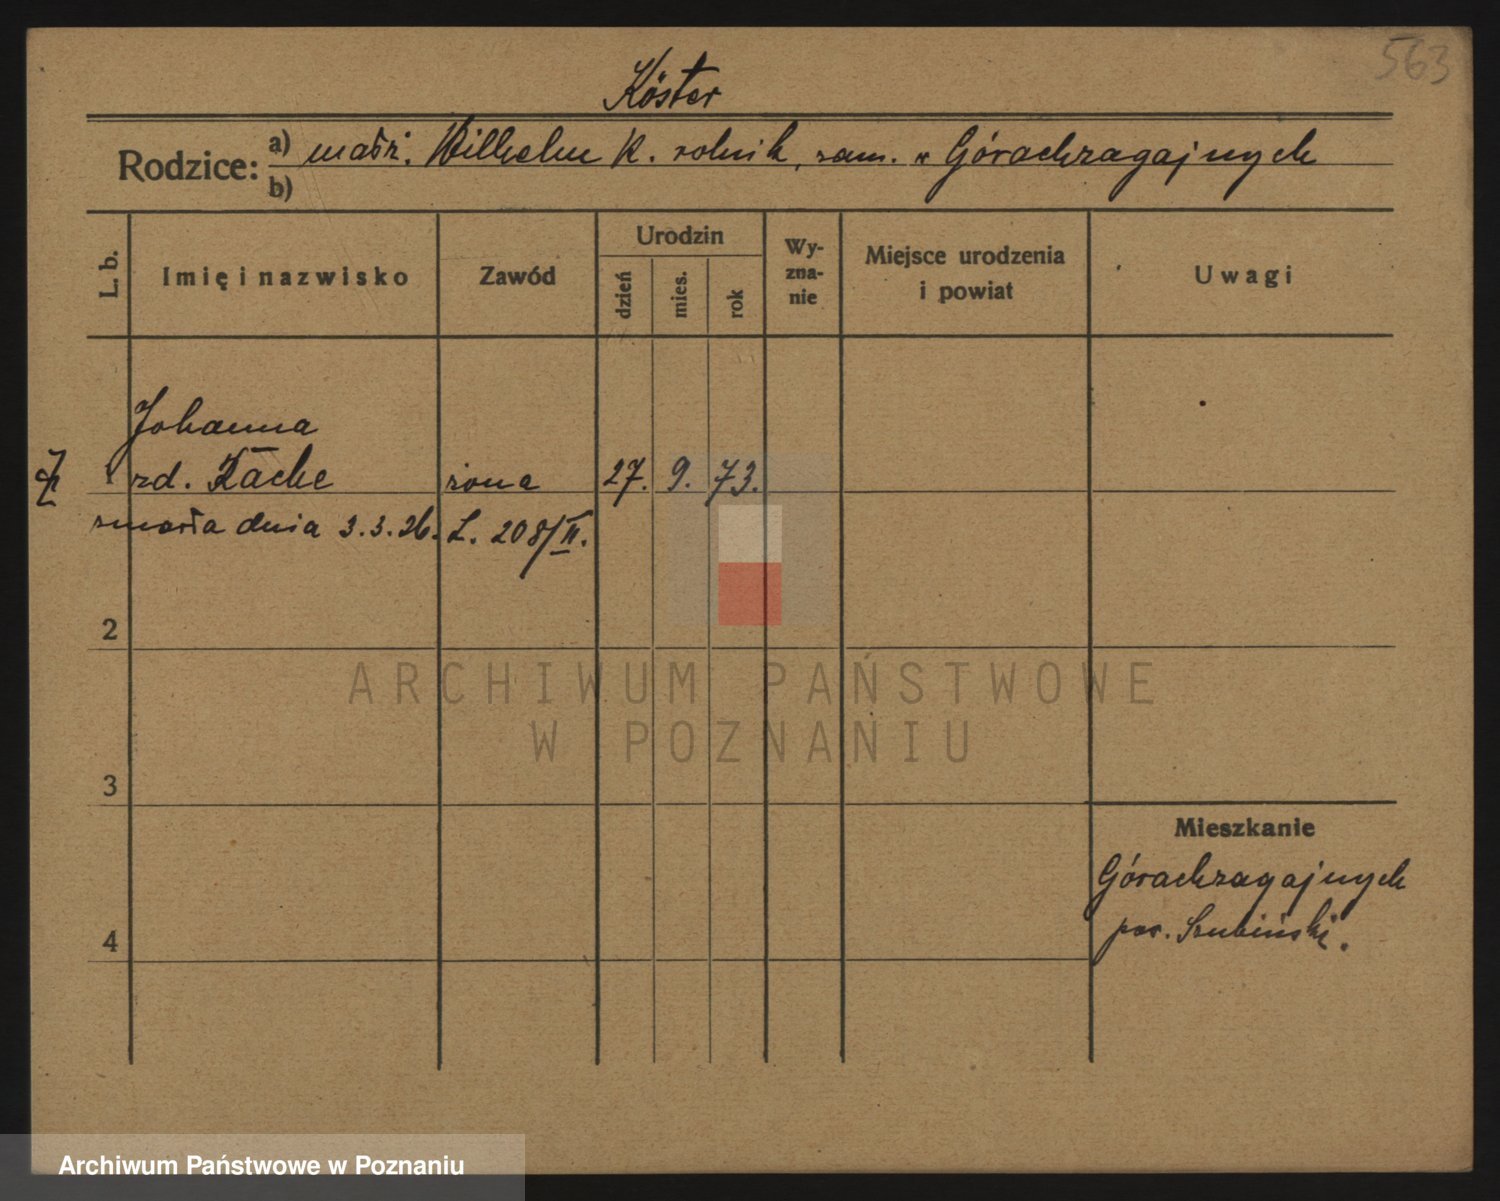 563
Köster
Rodzice: a) małż. Wilhelm K. rolnik, zam. w Górachzagajnych
b)
L. b. Imię i nazwisko Zawód Urodzin dzień mies. rok Wy-zna-nie Miejsce urodzenia i powiat Uwagi
Johanna
1 zd. żona 27. 9. 73.
zmarła dnia 3.3.26. L. 208/II.
2
3
4
Mieszkanie
Górachzagajnych
pow. Szubiński.
ARCHIWUM PAŃSTWOWE
W POZNANIU
Archiwum Państwowe w Poznaniu